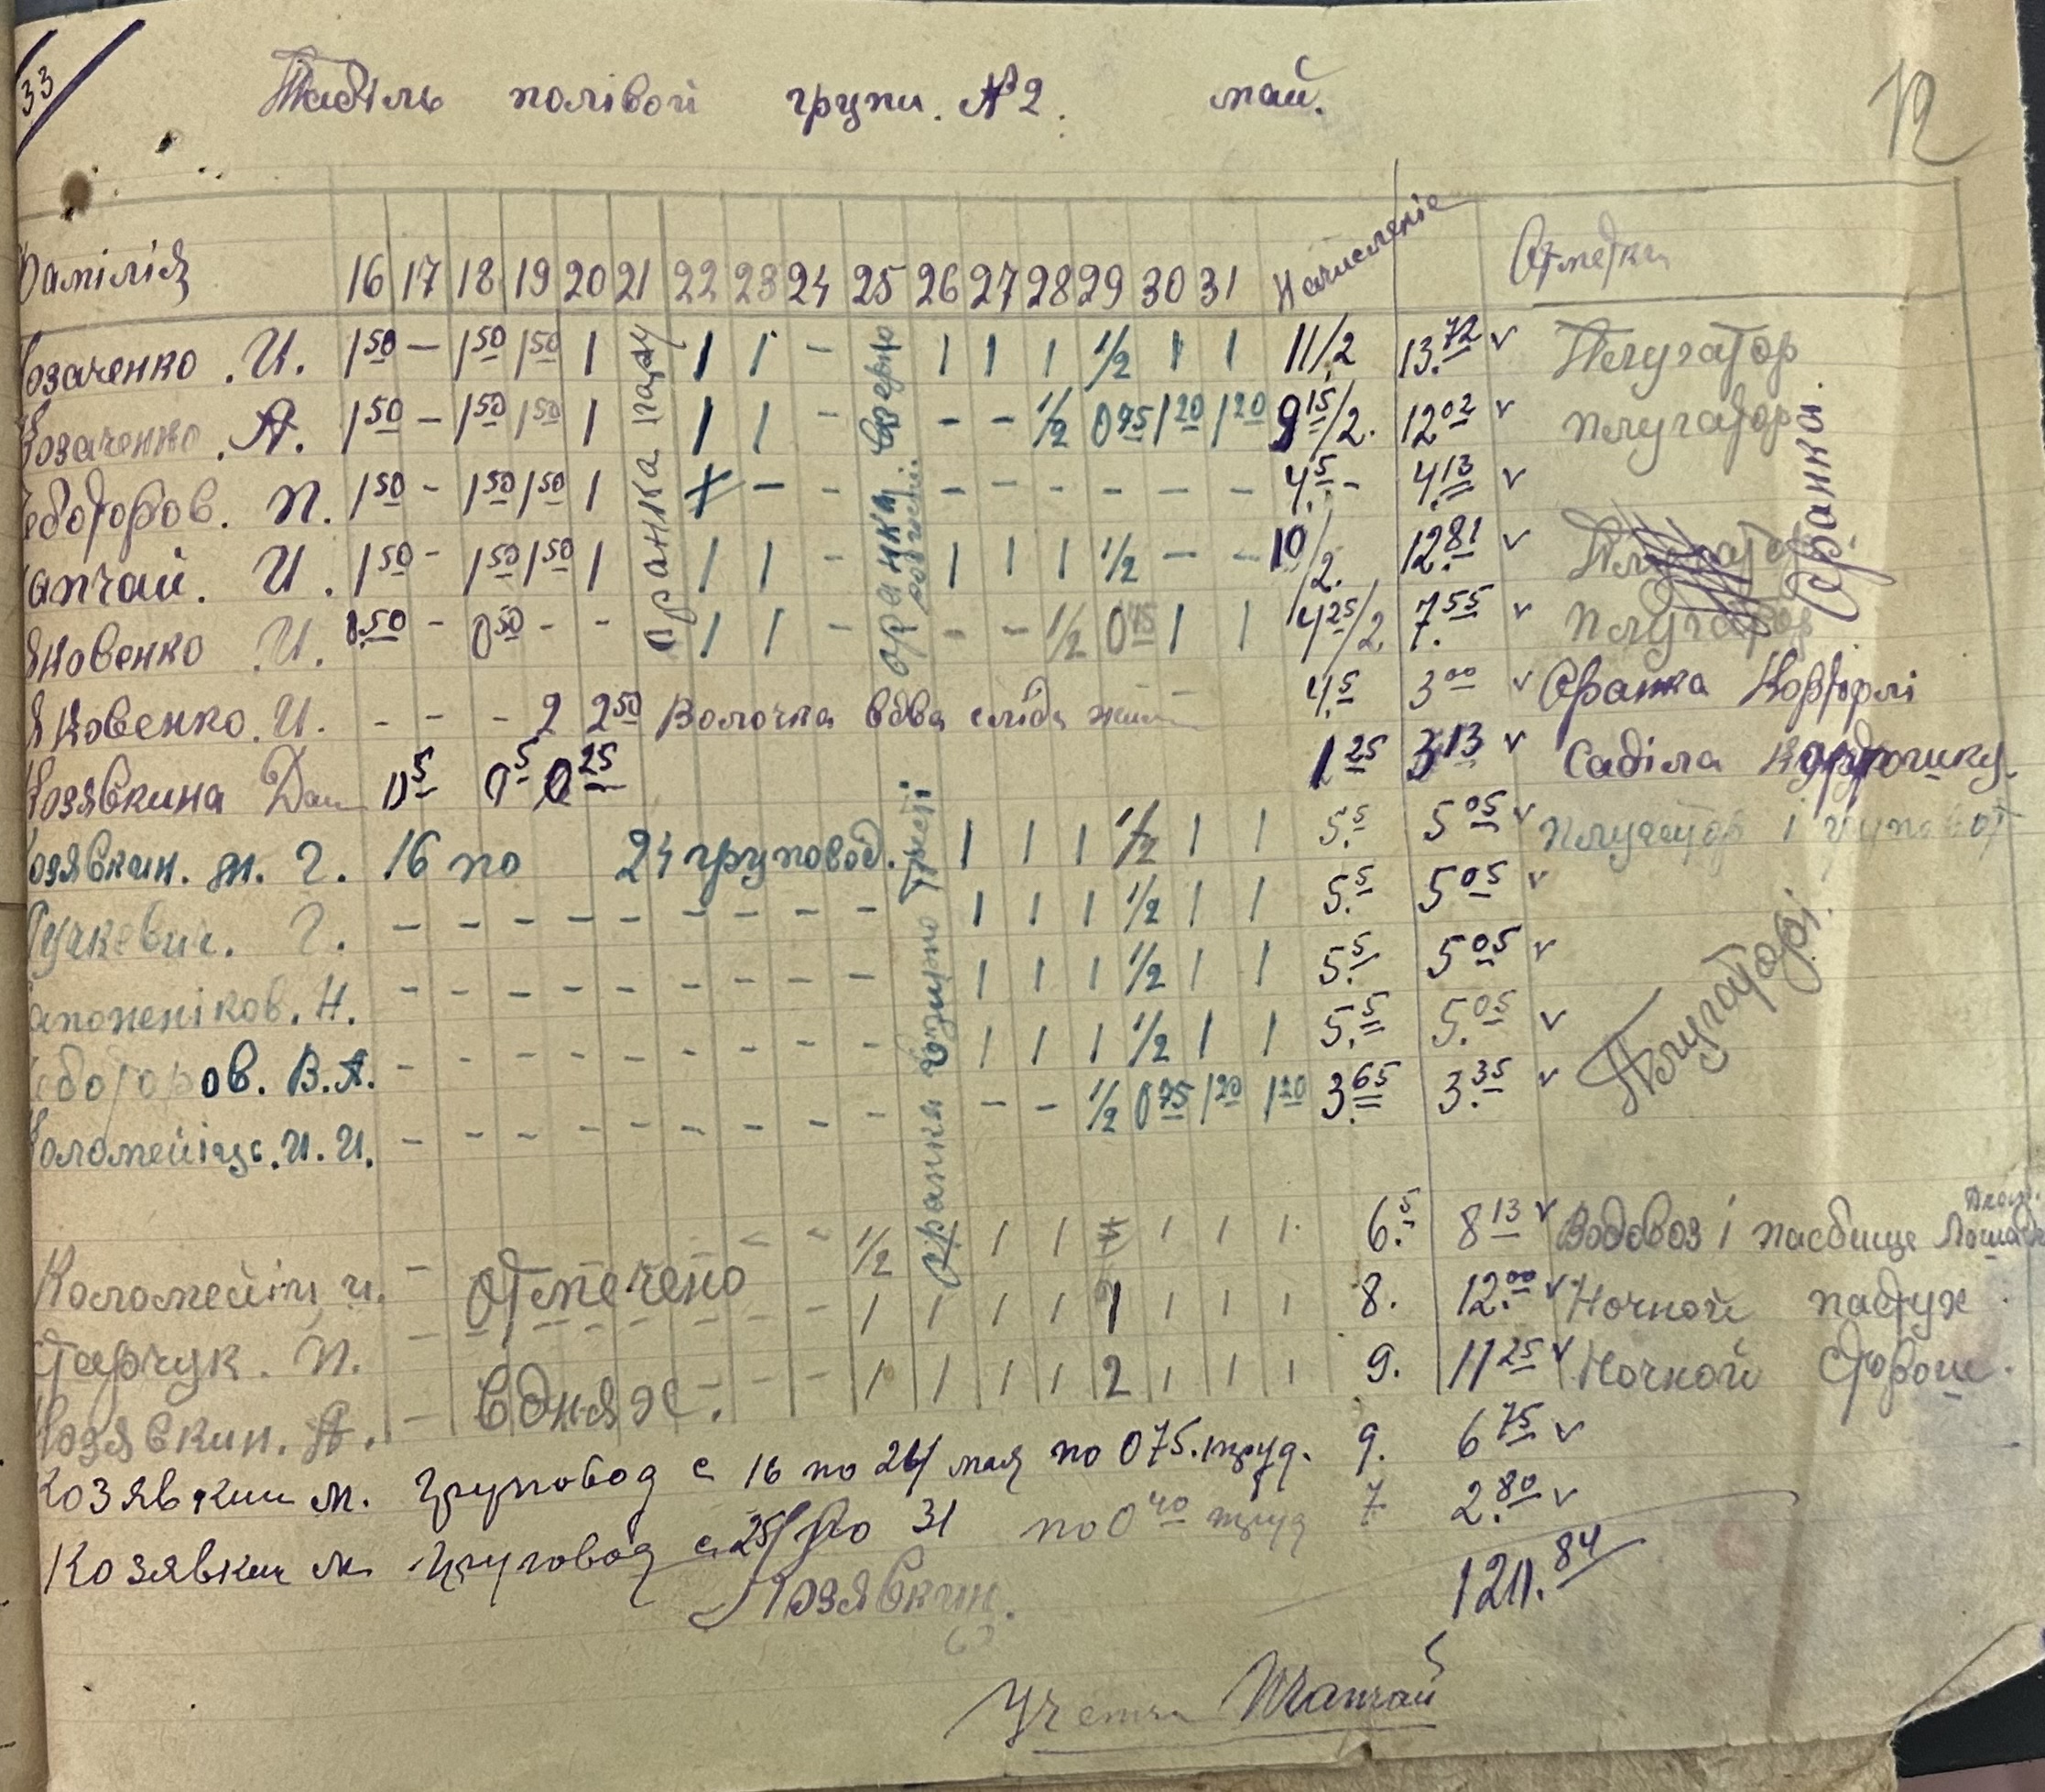 33
Табіль полівой групи. №2. май.
12
Фамілія 16 17 18 19 20 21 22 23 24 25 26 27 28 29 30 31 Начисленіе Отметка
Козаченко. И. 1 50 - 1 50 1 50 1 1 1 - 1 1 1 1/2 1 1 11/2 13.72 v Плугатор
Козаченко. А. 1 50 - 1 50 1 50 1 1 1 - - - 1/2 0 75 1 20 1 20 9 15/2. 12 02 v плугатор
Чеботоров. П. 1 50 - 1 50 1 50 1 - - - - - - - - 4.5 - 4.13 v
Шапчай. И. 1 50 - 1 50 1 50 1 1 1 - 1 1 1 1/2 - - 10/2. 12.81 v
Яковенко И. 0.50 - 0 50 - - 1 1 - - - 1/2 0 75 1 1 4 25/2 7.55 v плугатор
Яковенко. И. - - - 2 2 50 Волочка вдва сліда 4.5 3 00 v Оранка Картофлі
Козявкина 0 5 0 5 0 25 1 25 3 13 v Саділа
Козявкин. м. Г. 16 по 24 груповод. 1 1 1 1/2 1 1 5.5 5 05 v плугатор і груповод
Г. - - - - - - - - - 1 1 1 1/2 1 1 5.5 5 05 v
Н. - - - - - - - - - 1 1 1 1/2 1 1 5.5 5 05 v
Чеботоров. В.А. - - - - - - - - - 1 1 1 1/2 1 1 5.5 5.05 v
Коломейіць. И. И. - - - - - - - - - - - 1/2 0 75 1 20 1 20 3.65 3.35 v
Оранка пару
Оранка
Оранка
Оранка
Плугаторі
Коломейіц и. - 1/2 1 1 1 1 1 1 6.5 8 13 v Водовоз і пасбище Лошадей
отмечено
П. - 1 1 1 1 1 1 1 1 8. 12.00 v Ночной пастух
Козявкин. А. - вднях. 1 1 1 1 2 1 1 1 9. 11 25 v Ночной сторож.
Козявкин м. груповод с 16 по 24 мая по 0 75. труд. 9. 6 75 v
Козявкин м. груповод с 25 по 31 по 0 40 труд 7 2.80 v
Козявкин.
120.84
Учетчик Шапчай